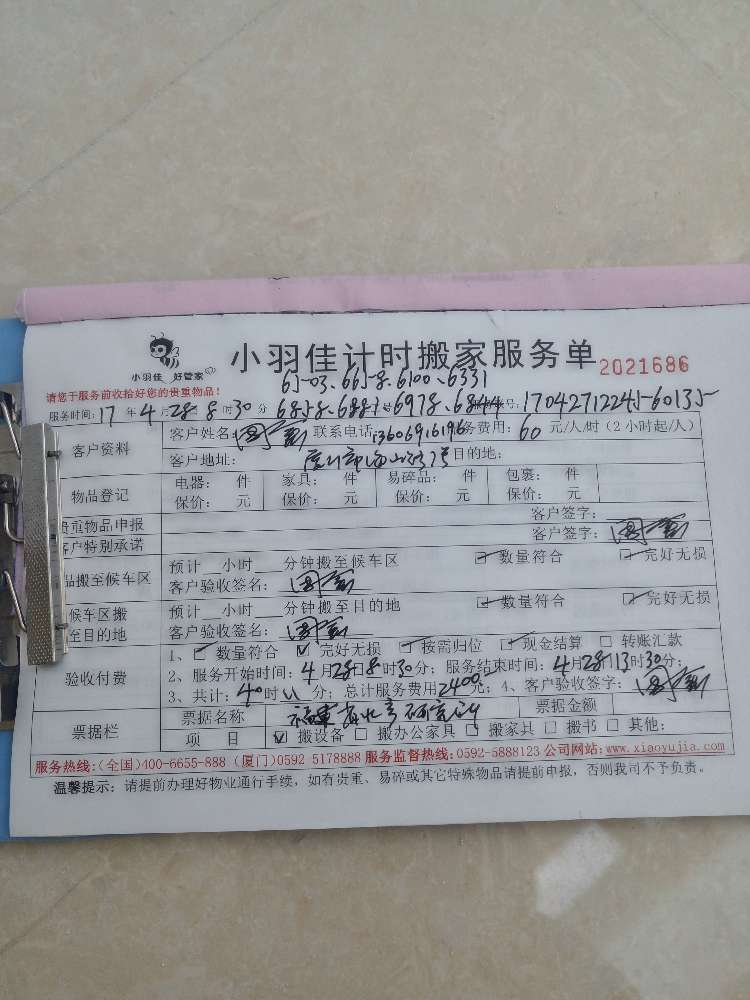 小羽佳 好管家
小羽佳计时搬家服务单 2021686
请您于服务前收拾好您的贵重物品！
6100、6331
服务时间：17年4月28 8时30分 6978、 号：
客户资料 客户姓名： 联系电话：13606916196 务费用：60元/人/时（2小时起/人）
客户地址： 目的地：
物品登记 电器： 件 家具： 件 易碎品： 件 包裹： 件
保价： 元 保价： 元 保价： 元 保价： 元
贵重物品申报 客户签字：
客户特别承诺 客户签字：
品搬至候车区 预计 小时 分钟搬至候车区 ☑数量符合 ☑完好无损
客户验收签名：
候车区搬至目的地 预计 小时 分钟搬至目的地 ☑数量符合 ☑完好无损
客户验收签名：
验收付费 1、☑数量符合 ☑完好无损 ☑按需归位 ☑现金结算 □转账汇款
2、服务开始时间：4月28日8时30分；服务结束时间：4月28日13时30分；
3、共计：40时 分；总计服务费用2400元；4、客户验收签字：
票据栏 票据名称 票据金额
项 目 ☑搬设备 □搬办公家具 □搬家具 □搬书 □其他：
服务热线：（全国）400-6655-888（厦门）0592 5178888 服务监督热线：0592-5888123 公司网站：www.xiaoyujia.com
温馨提示：请提前办理好物业通行手续，如有贵重、易碎或其它特殊物品请提前申报，否则我司不予负责。